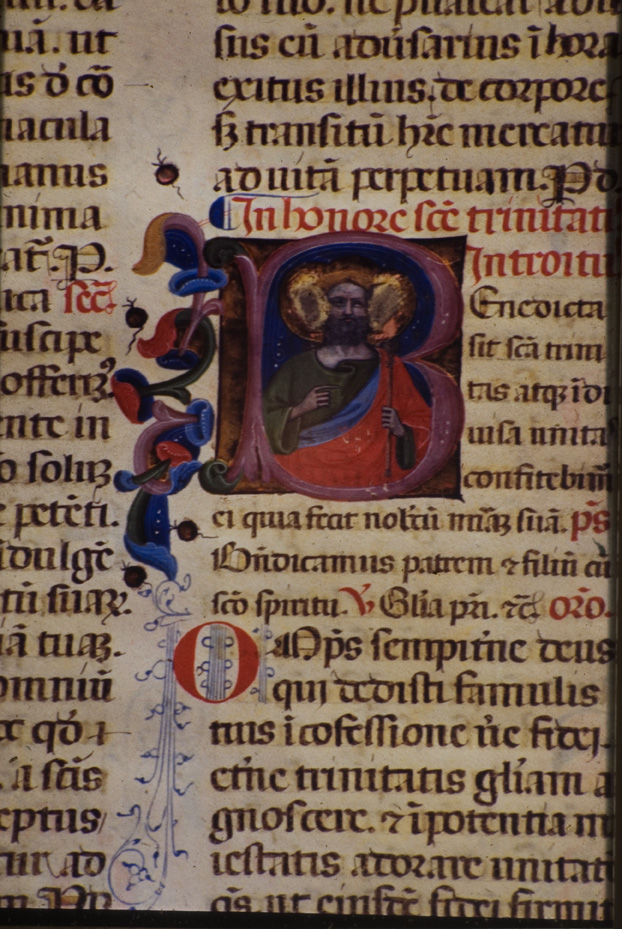 uā. ut
is d̄ cō
macula
ianus
nima
at̄. P.
ica sec̄
uscipe
offeriȝ.
ente in
o soliȝ
e petēti.
idulgē
tū suaꝝ.
iā tuaȝ.
omniū
e qd̄ i
. a scīs
ceptus
tur ad
sus cū adūsarius ī hora
exitus illius. de corpore
sȝ transitū hr̄e mercatu
ad uitā perpetuam. P do
In honore scē trinitati
Introitu
Benedicta
sit scā trini
tas atqȝ īdi
uisa unita
confitebim
ei quia fecit nobcū miāȝ suā. ps̄
Bn̄dicamus patrem ⁊ filiū cū
scō spiritu. V̄ Glīa pri. ⁊c̄ oro.
Omps̄ sempitne deus
qui dedisti famulis
tuis ī cōfessione ūe fidei.
et̄ne trinitatis glīam a
gnoscere. ⁊ ī potentia m
iestatis adorare unitat
qs̄ ut eiusdē fidei firmit